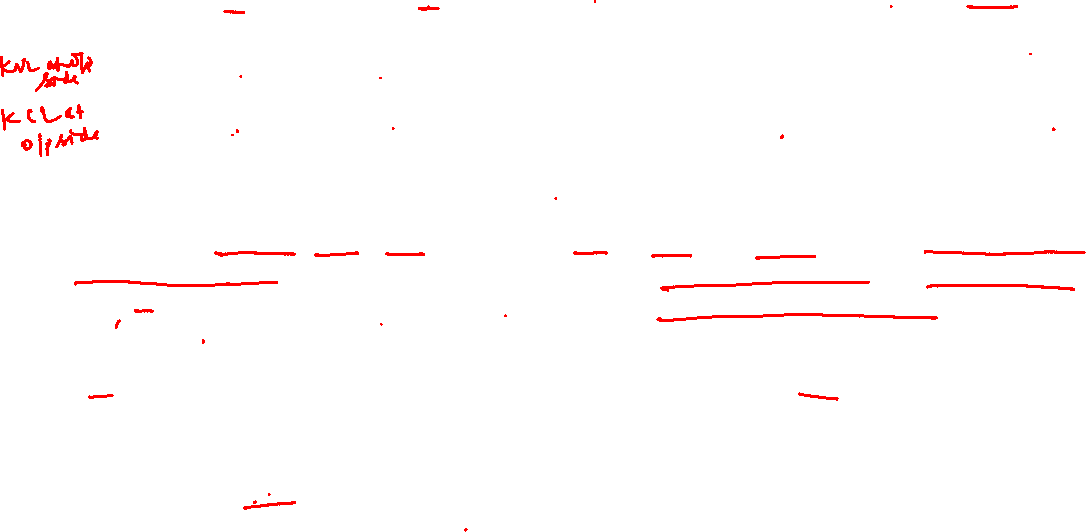 KVL at o/p
side
KCL at
o/p side